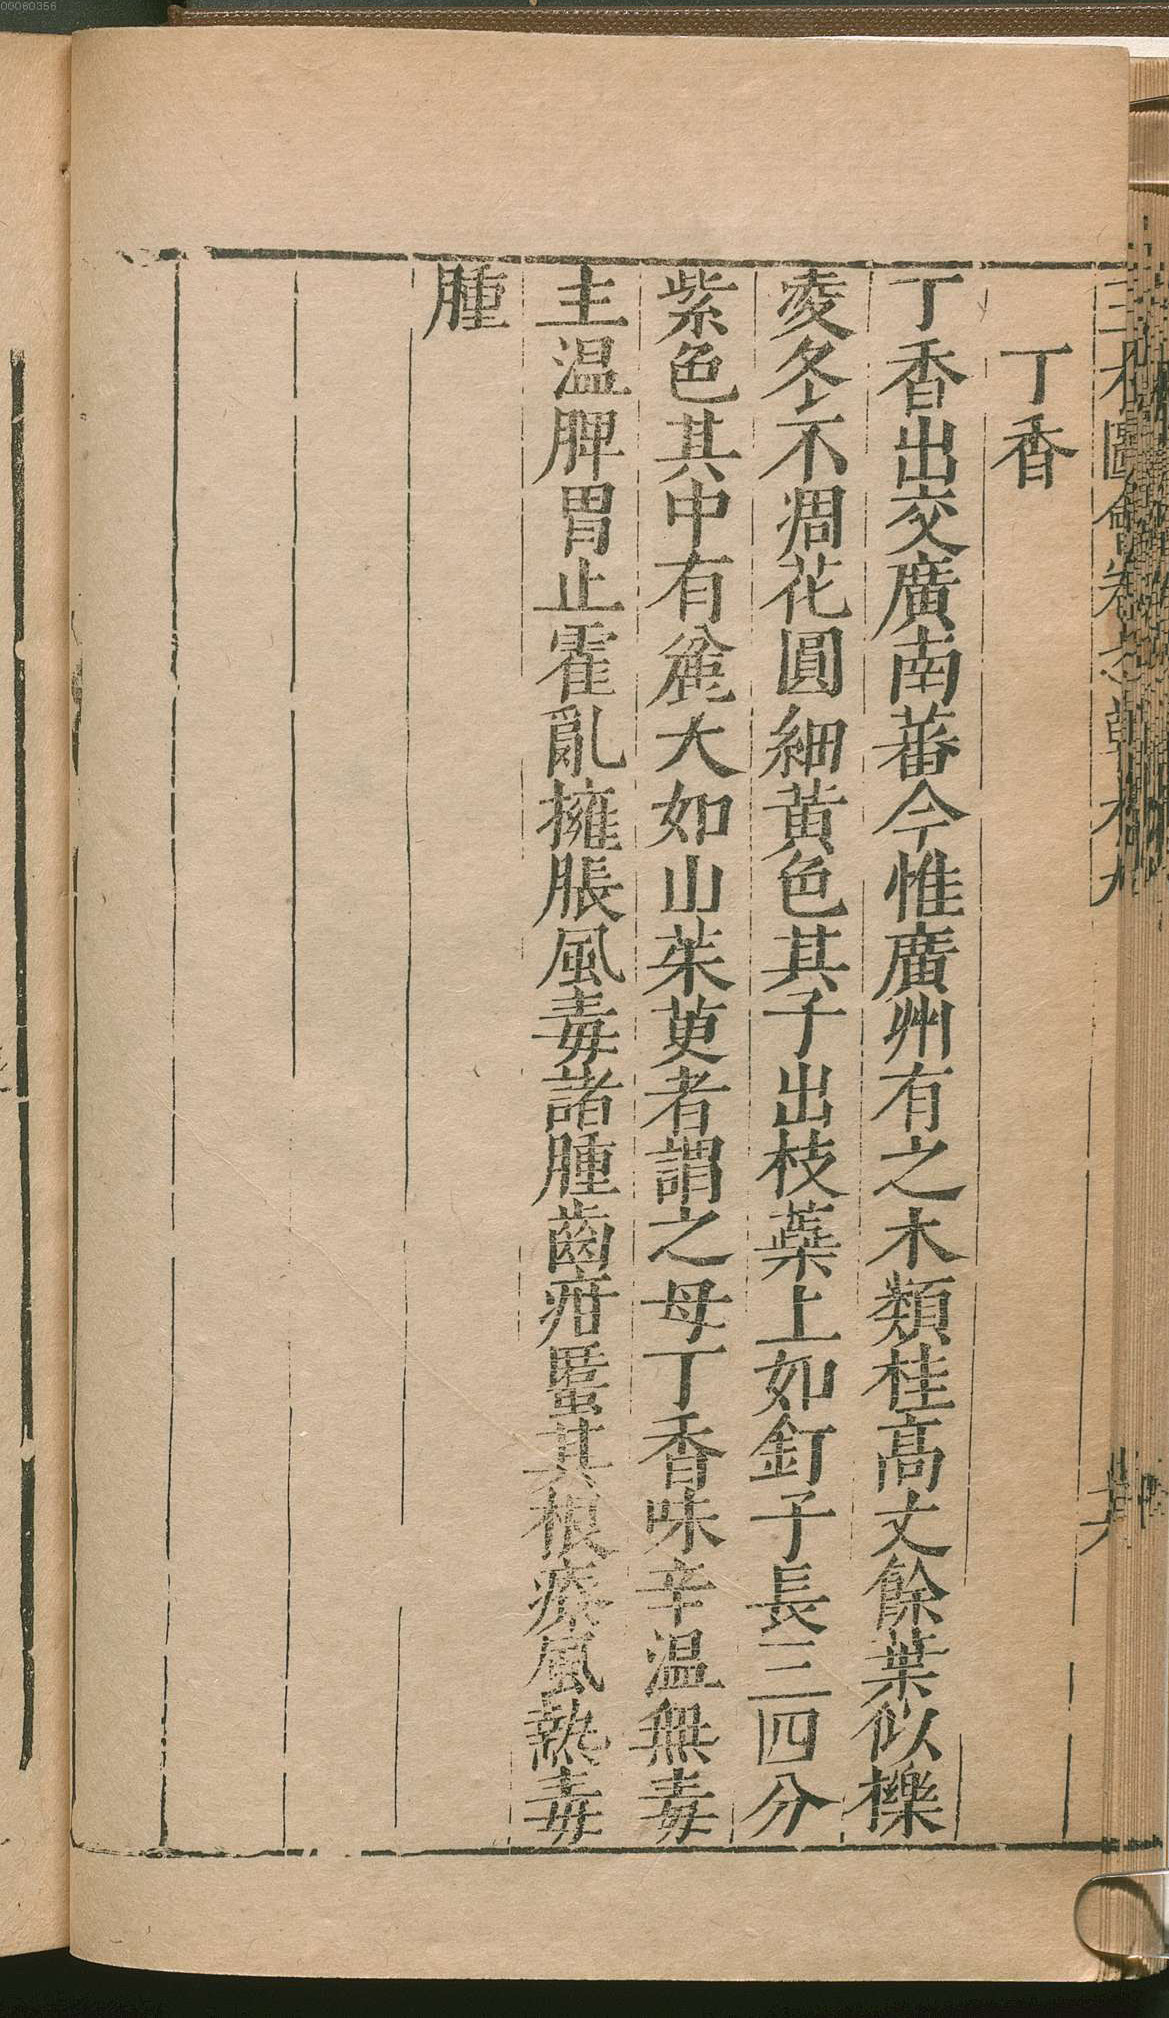 丁香
丁香出交廣南蕃今惟廣州有之木類桂高丈餘葉似櫟
凌冬不凋花圓細黄色其子出枝蘂上如釘子長三四分
紫色其中有麄大如山茱萸者謂之母丁香味辛温無毒
主温脾胃止霍亂擁脹風毒諸腫齒疳䘌其根療風熱毒
腫
00060356